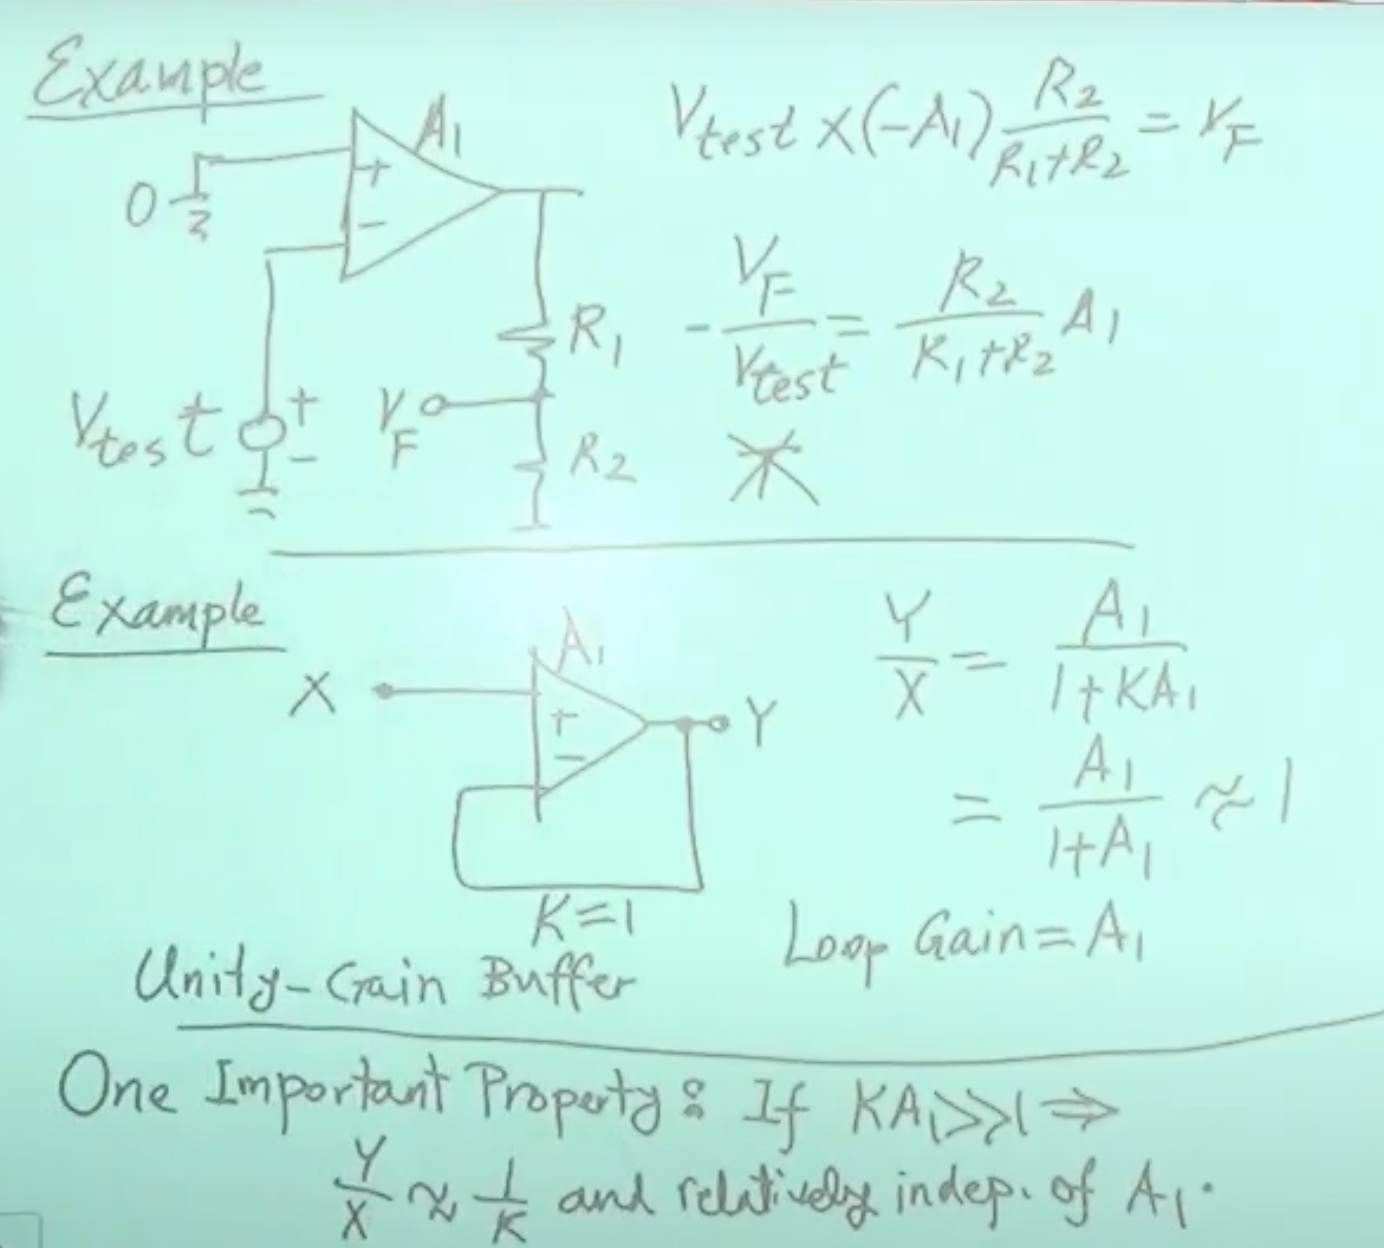 Example
A₁
+
−
0
R₁
V_test
+
−
V_F
R₂
V_test × (−A₁) R₂/(R₁+R₂) = V_F
− V_F/V_test = R₂/(R₁+R₂) A₁
Example
X
A₁
+
−
Y
K=1
Unity-Gain Buffer
Y/X = A₁/(1+KA₁)
= A₁/(1+A₁) ≈ 1
Loop Gain = A₁
One Important Property: If KA₁>>1 ⇒
Y/X ≈ 1/K and relatively indep. of A₁.